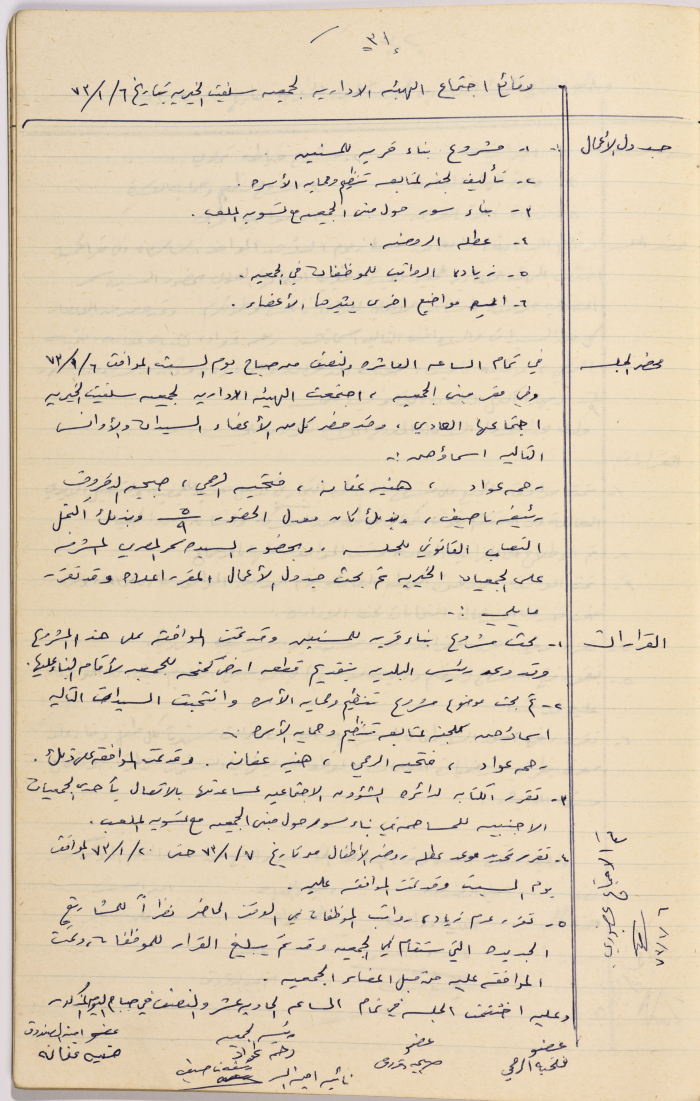 ٣١
وقائع اجتماع الهيئه الاداريه لجمعيه سلفيت الخيريه بتاريخ ٧٣/١/٦
جدول الأعمال
١- مشروع بناء قريه للمسنين .
٢- تأليف لجنه لمتابعه تنظيم وحمايه الأسره .
٣- بناء سور حول مبنى الجمعيه مع تسويه الملعب .
٤- عطله الروضه .
٥- زيادة الرواتب للموظفات في الجمعيه .
٦- اية مواضيع اخرى يثيرها الأعضاء .
محضر الجلسه
في تمام الساعه العاشره والنصف من صباح يوم السبت الموافق ٧٣/١/٦
وفي مقر مبنى الجمعيه ، اجتمعت الهيئه الاداريه لجمعيه سلفيت الخيريه
اجتماعها العادي ، وقد حضر كل من الأعضاء السيدات والأوانس
التاليه اسماؤهن :-
رحمه عواد ، هنيه عفانه ، فتحيه الرمحي ، صبحيه
رئيفه ناصيف ، وبذلك كان معدل الحضور ٥/٩ وبذلك اكتمل
النصاب القانوني للجلسه . وبحضور السيده سحر المصري المشرفه
على الجمعيات الخيريه تم بحث جدول الأعمال المقرر اعلاه وقد تقرر
ما يلي :-
القرارات
١- بحث مشروع بناء قريه للمسنين وقد تمت الموافقه على هذا المشروع
وقد وعد رئيس البلديه بتقديم قطعه ارض كمنحه للجمعيه لأقامه البناء عليها .
٢- تم بحث موضوع مشروع تنظيم وحمايه الأسره وانتخبت السيدات التاليه
اسماؤهن كلجنه لمتابعه تنظيم وحمايه الأسره :-
رحمه عواد ، فتحيه الرمحي ، هنيه عفانه . وقد تمت الموافقه على ذلك .
٣- تقرر الكتابه لدائره الشؤون الاجتماعيه لمساعدتها بالاتصال بأحدى الجمعيات
الاجنبيه للمساهمه في بناء سور حول مبنى الجمعيه مع تسويه الملعب .
٤- تقرر تحديد موعد عطله روضه الأطفال من تاريخ ٧٣/١/٧ حتى ٧٣/١/٢٠ الموافق
يوم السبت وقد تمت الموافقه عليه .
٥- تقرر عدم زيادة رواتب الموظفات في الوقت الحاضر نظراً للمشاريع
الجديده التي ستقام في الجمعيه وقد تم تبليغ القرار للموظفات وتمت
الموافقه عليه من قبل اعضاء الجمعيه .
وعليه اختتمت الجلسه في تمام الساعه الحاديه عشر والنصف في صباح اليوم المذكور
تم الاجتماع بحضوري
٧٣/١/٦
عضو
فتحيه الرمحي
عضو
رئيسه الجمعيه
رحمه عواد
نائبه امينه السر
عضو امينه الصندوق
هنيه عفانه